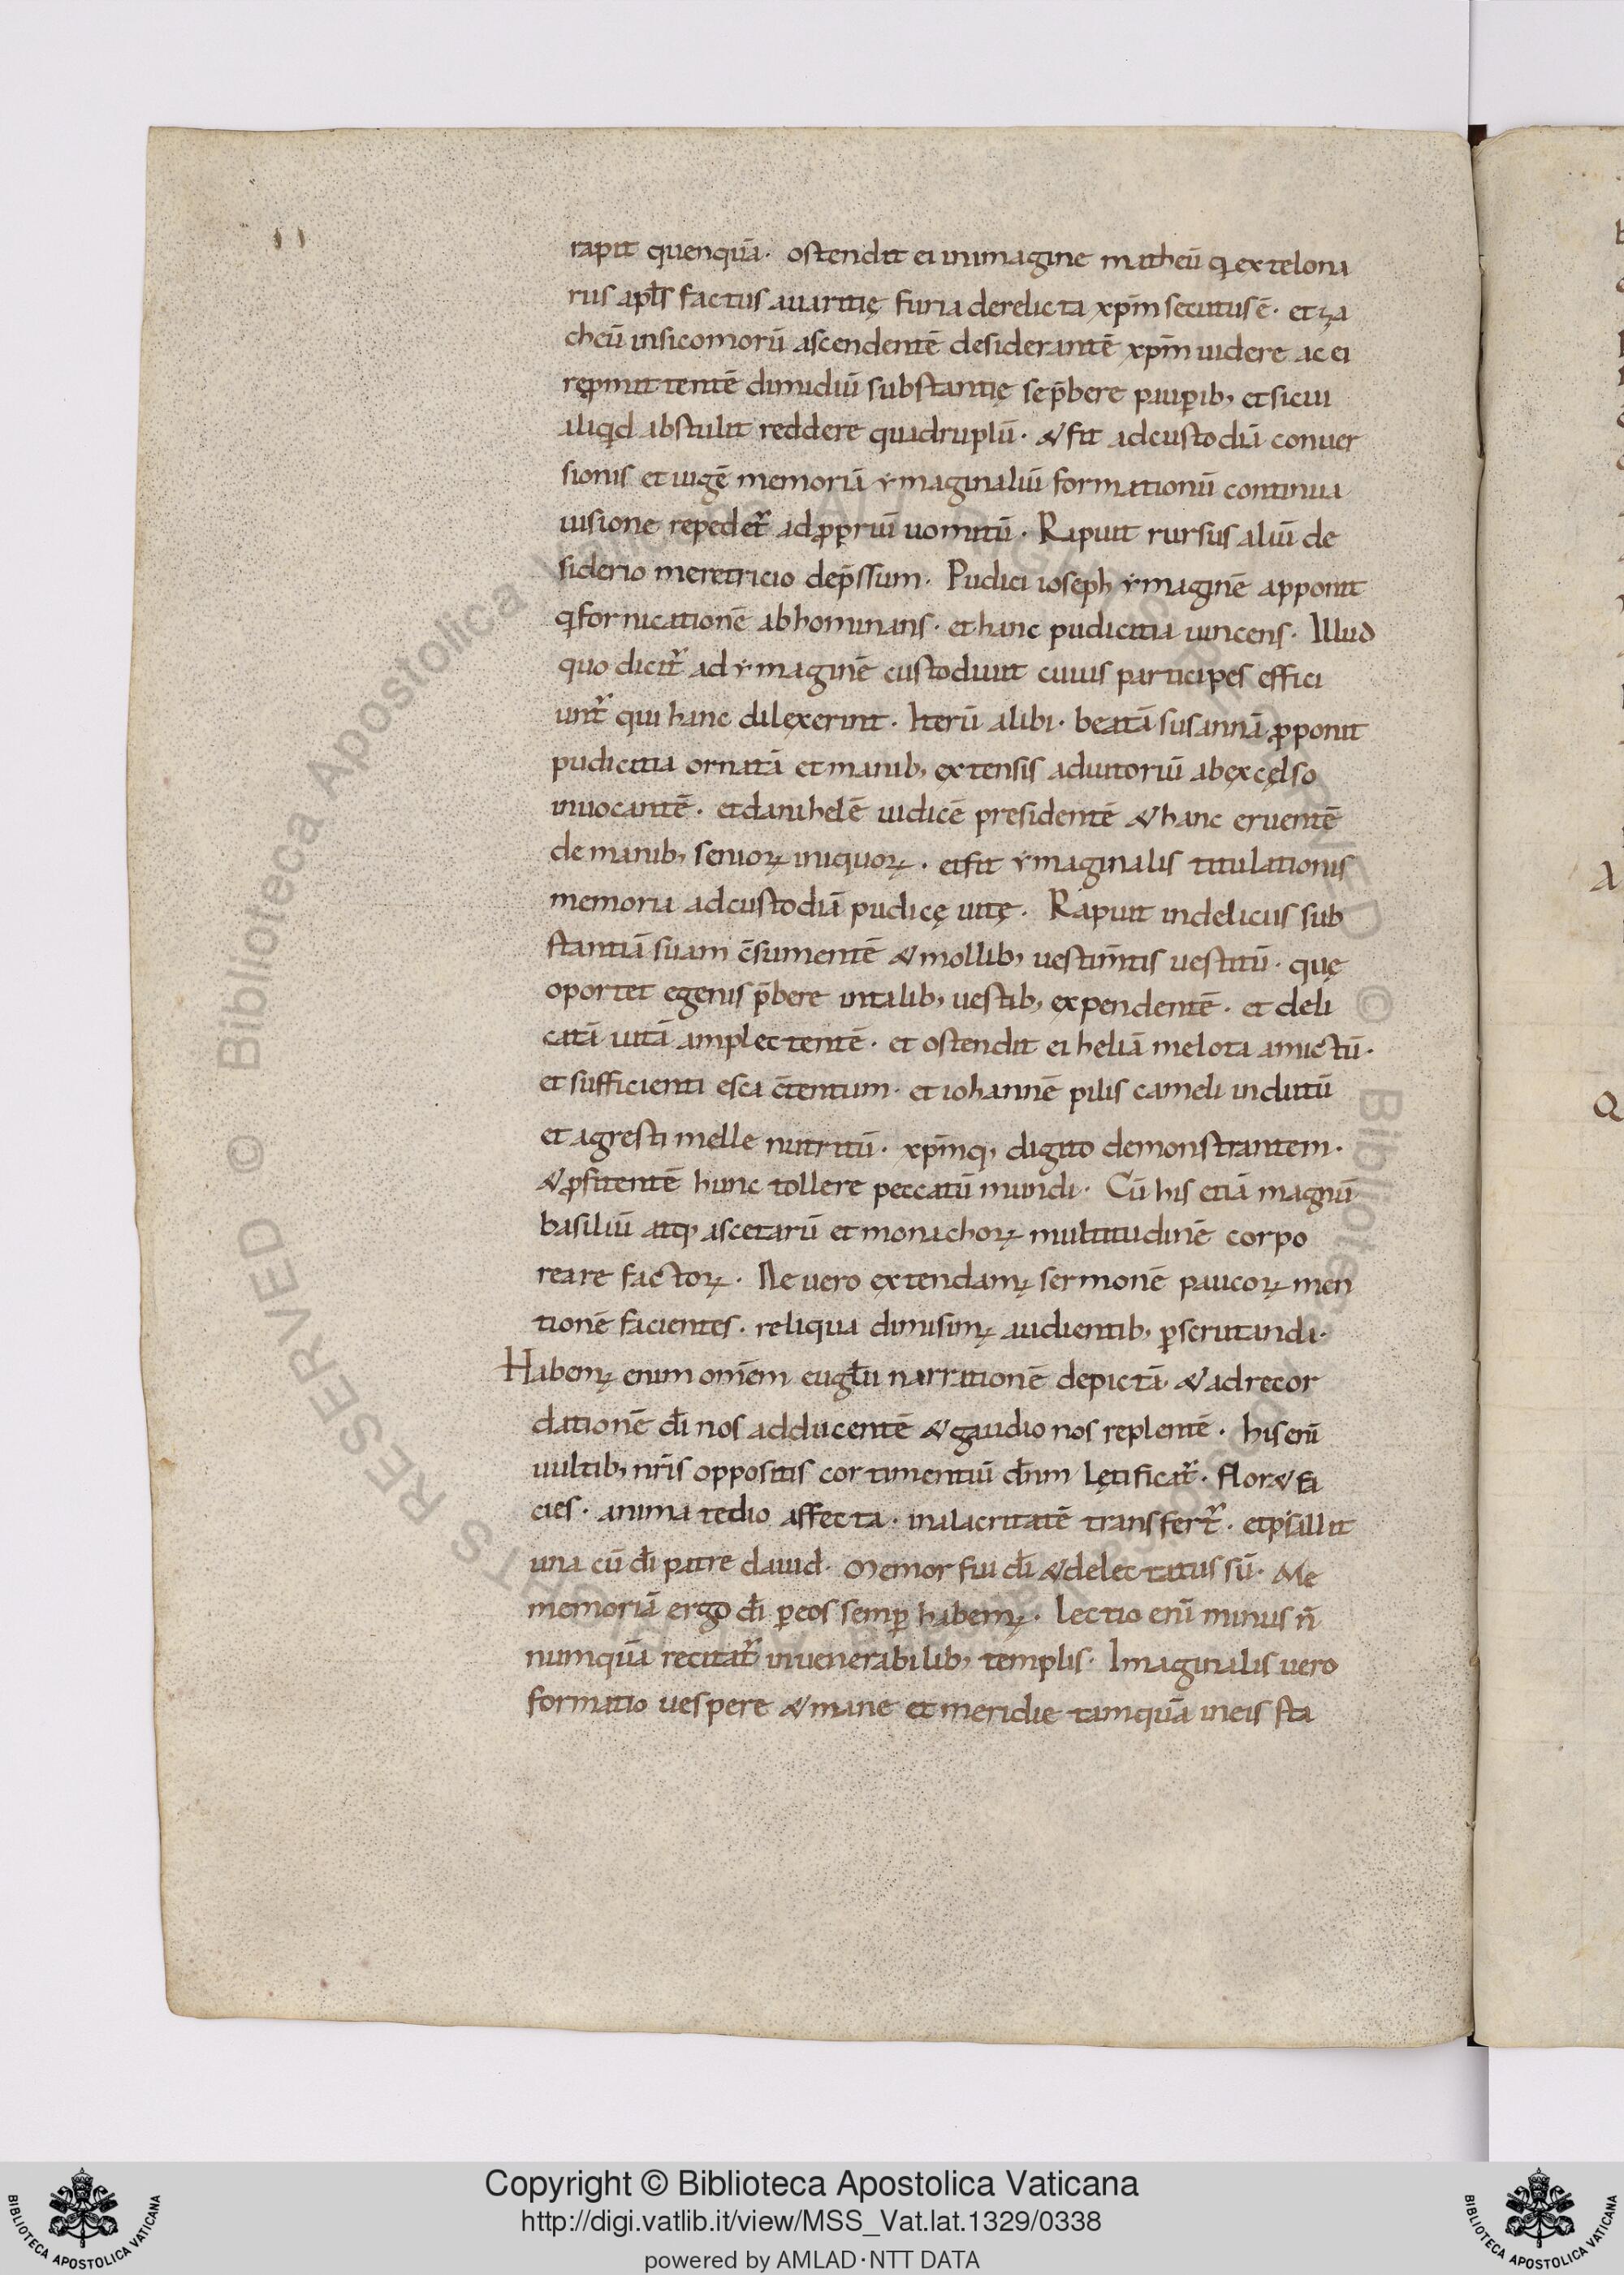 rapit quenquā. ostendit ei in imagine matheū q ex telona
rius apl̄s factus auaritię furia derelicta xp̄m secutus ē. et za
cheū in sicomorū ascendentē desiderantē xp̄m uidere ac ei
repmittentē dimidiū substantię se p̄bere pauꝑib; et si cui
aliqd abstulit reddere quadruplū. & fit ad custodiā conuer
sionis et iugē memoriā ymaginaliū formationū continua
uisione repedet᷑ ad ꝓpriū uomitū. Rapuit rursus aliū de
siderio meretricio dep̄ssum. Pudici ioseph ymaginē apponit
q fornicationē abhominans. et hanc pudicitia uincens. Illud
quo dicit᷑ ad ymaginē custodiuit cuius participes effici
unt᷑ qui hanc dilexerint. Iterū alibi. beatā susannā ꝓponit
pudicitia ornatā et manib; extensis adiutoriū ab excelso
inuocantē. et danihelē iudicē presidentē & hanc eruentē
de manib; senioꝝ iniquoꝝ. et fit ymaginalis titulationis
memoria ad custodiā pudicę uitę. Rapuit in deliciis sub
stantiā suam c̄sumentē & mollib; uestim̄tis uestitū. quę
oportet egenis p̄bere in talib; uestib; expendentē. et deli
catā uitā amplectentē. et ostendit ei heliā melota amictū.
et sufficienti esca c̄tentum. et iohannē pilis cameli indutū
et agresti melle nutritū. xp̄mq; digito demonstrantem.
& ꝓfitentē hunc tollere peccatū mundi. Cū his etiā magnū
basiliū atq; ascetarū et monachoꝝ multitudinē corpo
reare factoꝝ. Ne uero extendamꝰ sermonē paucoꝝ men
tionē facientes. reliqua dimisimꝰ audientib; ꝑscrutandi.
Habemꝰ enim om̄em eugl̄ii narrationē depictā & ad recor
dationē dī nos adducentē & gaudio nos replentē. his enī
uultib; nr̄is oppositis cor timentiū dn̄m lętificat᷑. flor& fa
cies. anima tedio affecta. in alacritatē transfert᷑. et psallit
una cū dī patre dauid. Memor fui dī & delectatus sū. Me
memoriā ergo dī ꝑ eos semꝑ habemꝰ. Lectio enī minus n̄
numquā recitat᷑ in uenerabilib; templis. Imaginalis uero
formatio uespere & mane et meridie tamquā in eis sta
Copyright © Biblioteca Apostolica Vaticana
http://digi.vatlib.it/view/MSS_Vat.lat.1329/0338
powered by AMLAD·NTT DATA